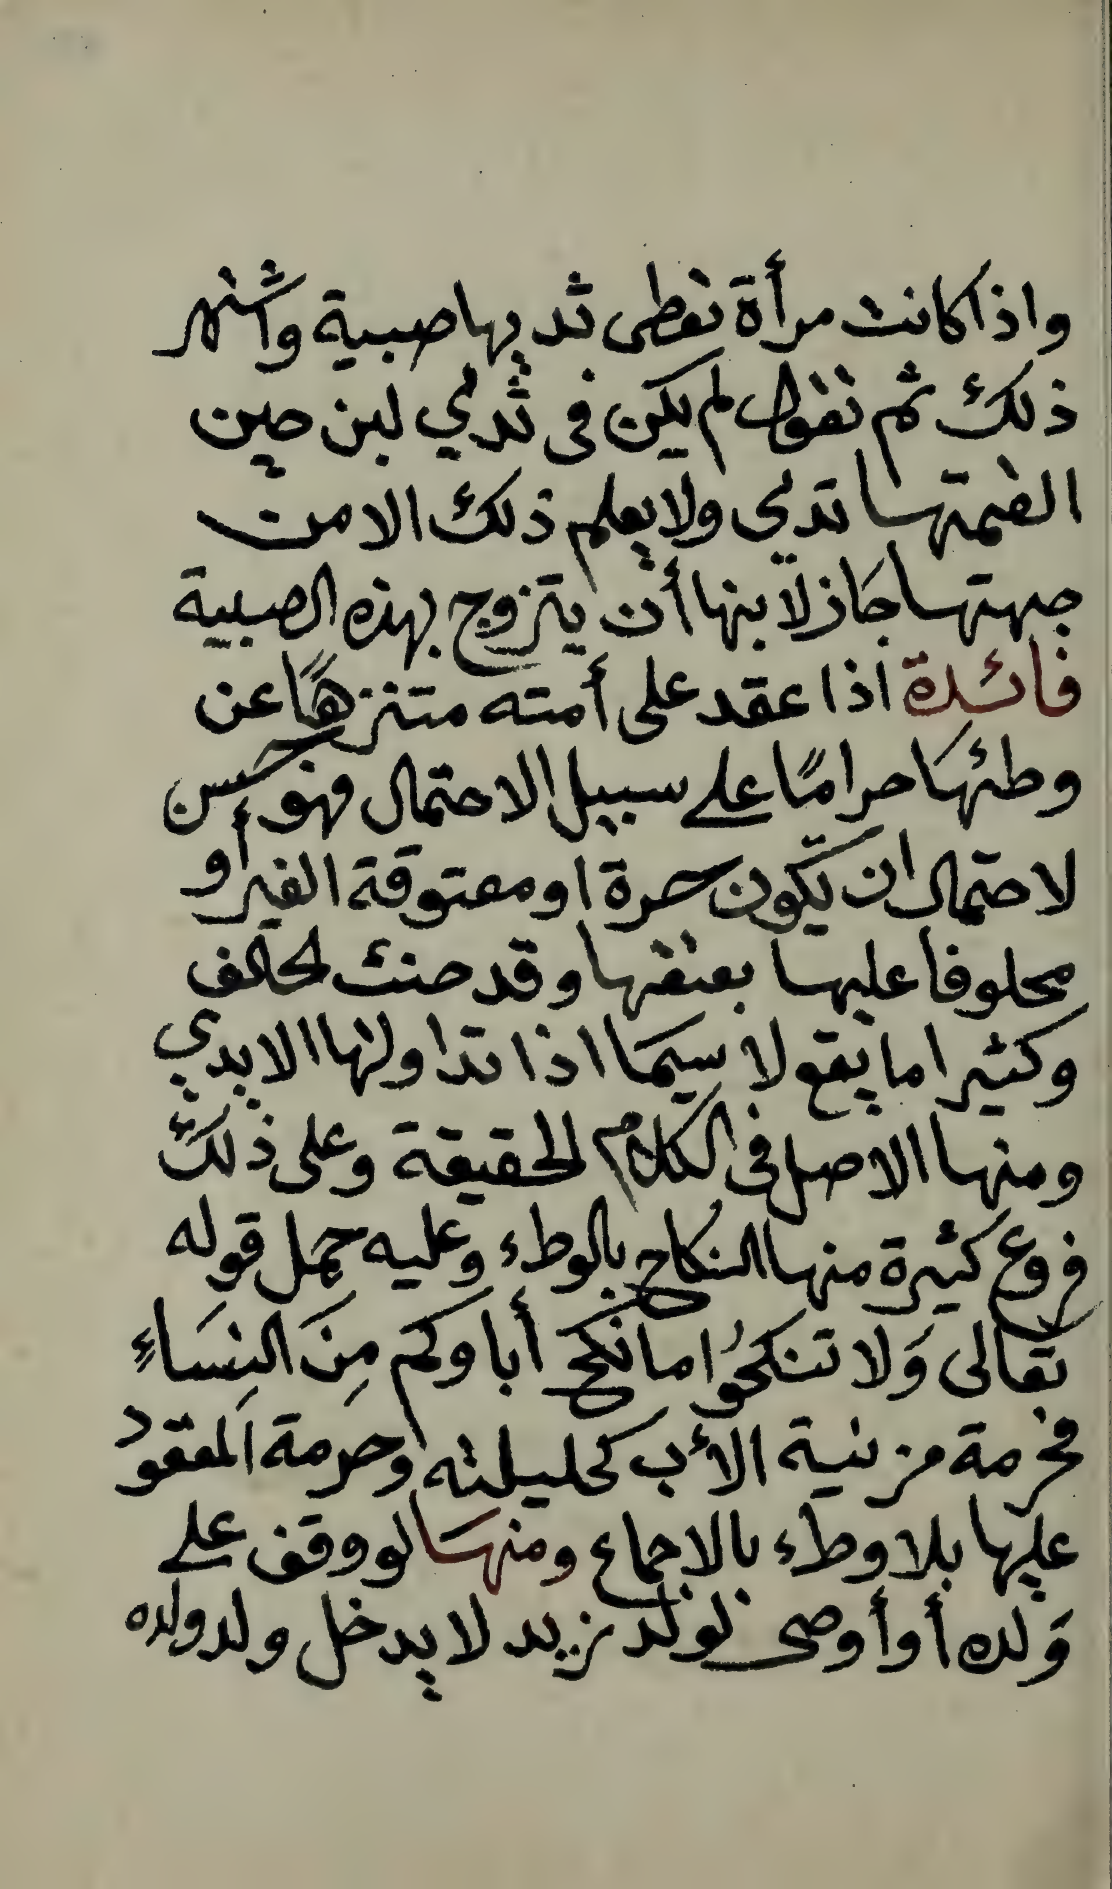 واذا كانت مرأة تعطى ثديها صبية واشتهر
ذلك ثم تقول لم يكن فى ثديي لبن حين
القمتها ثديي ولا يعلم ذلك الا من
جهتها جَاز لابنها أن يتزوج بهذه الصبية
فائدة اذا عقد على أمته متنزهًا عن
وطئهَا حرامًا على سبيل الاحتمال فهو حسن
لاحتمال ان تكون حرة او معتوقة الغير أو
محلوفا عليها بعتقها وقد حنث الحالف
وكثيرا ما يقع لا سيمَا اذا تداولتها الايدي
ومنها الاصل فى الكلام الحقيقة وعلى ذلك
فروع كثيرة منها النكاح بالوطء وعليه حمل قوله
تعَالى وَلا تنكحُوا ما نكح أباوكم مِنَ النِسَاءِ
فحرمة مزنية الأب كحليلته وحرمة المعقود
عليها بلا وطء بالاجماع ومنهَا لو وقف على
وَلده أو أوصى لولد زيد لا يدخل ولد ولده